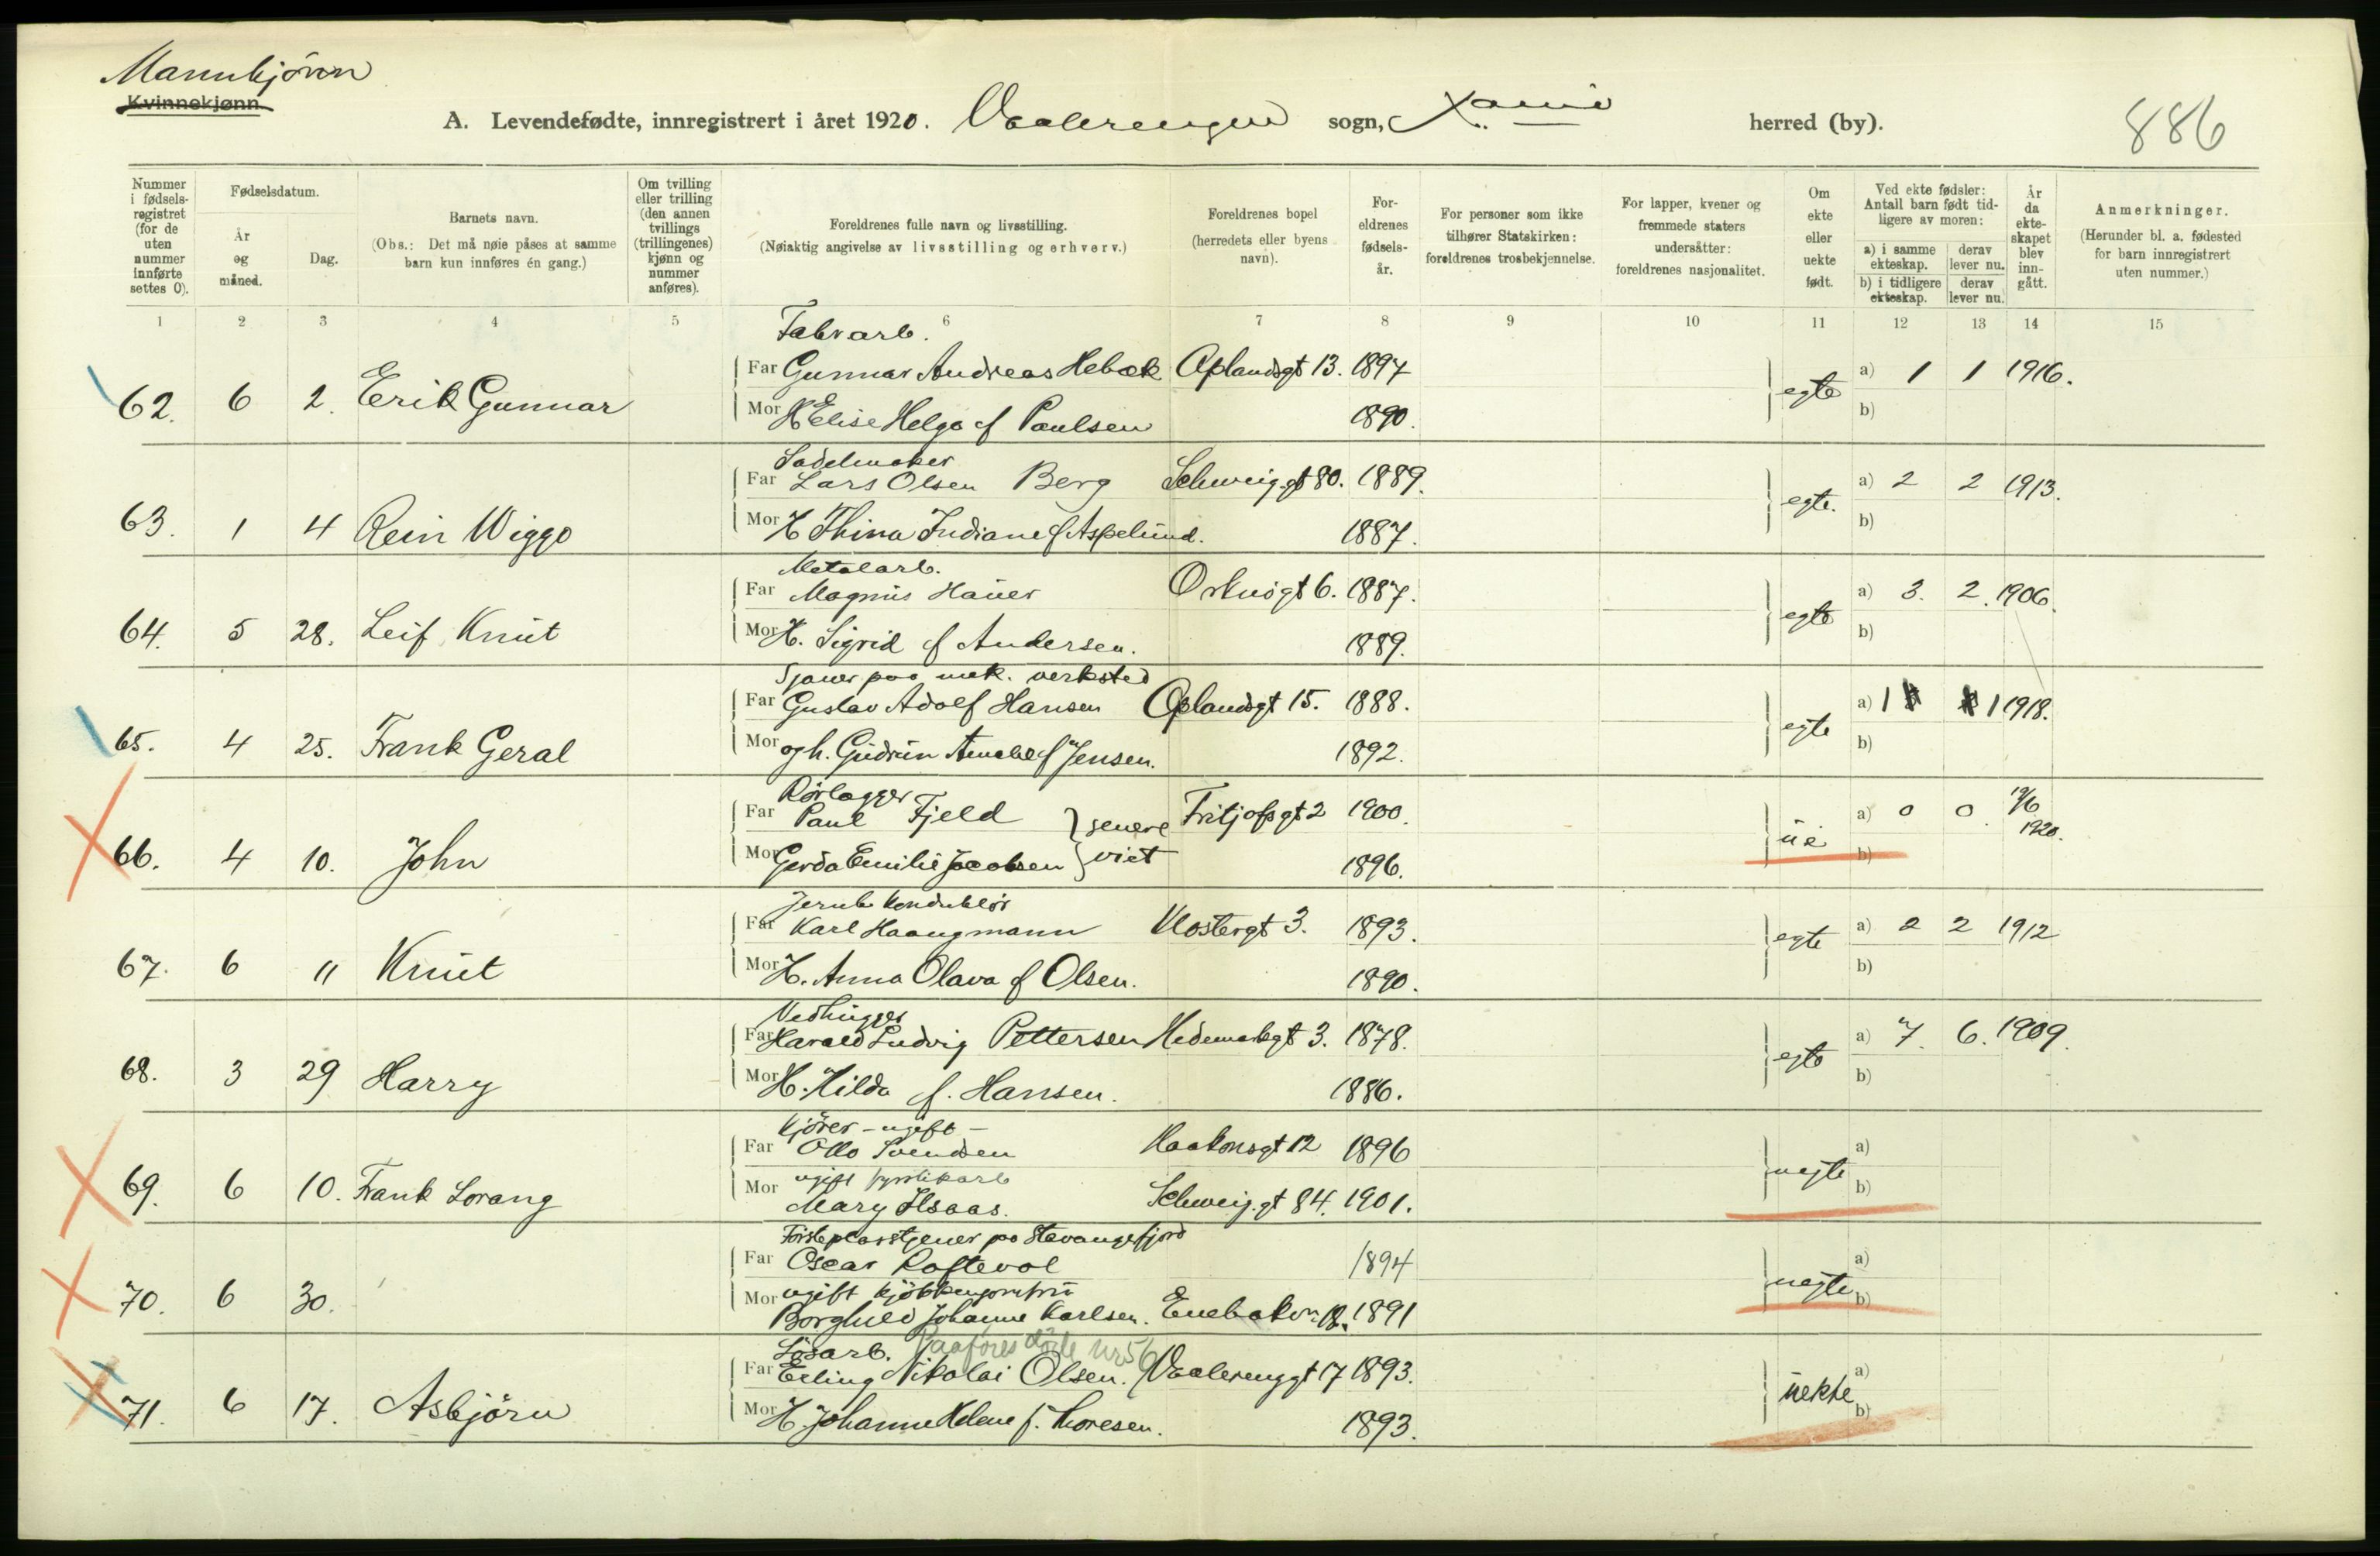 Mannkjönn
Kvinnekjønn
A. Levendefødte, innregistrert i året 1920. Vaalerengen sogn, Xania herred (by).
886
Nummer i fødselsregistret (for de uten nummer innførte settes 0).
Fødselsdatum.
År og måned.
Dag.
Barnets navn.
(Obs.: Det må nøie påses at samme barn kun innføres én gang.)
Om tvilling eller trilling (den annen tvillings (trillingenes) kjønn og nummer anføres).
Foreldrenes fulle navn og livsstilling.
(Nøiaktig angivelse av livsstilling og erhverv.)
Foreldrenes bopel (herredets eller byens navn).
Foreldrenes fødselsår.
For personer som ikke tilhører Statskirken: foreldrenes trosbekjennelse.
For lapper, kvener og fremmede staters undersåtter: foreldrenes nasjonalitet.
Om ekte eller uekte født.
Ved ekte fødsler: Antall barn født tidligere av moren:
a) i samme ekteskap. derav lever nu.
b) i tidligere ekteskap. derav lever nu.
År da ekteskapet blev inngått.
Anmerkninger.
(Herunder bl. a. fødested for barn innregistrert uten nummer.)
1 2 3 4 5 6 7 8 9 10 11 12 13 14 15
Fabrarb.
62. 6 2. Erik Gunnar Far Gunnar Andreas Hebæk Oplandsgt 13. 1897 egte a) 1 1 1916.
Mor H Elise Helga f Paulsen 1890. b)
Sadelmaker
63. 1 4 Rein Wiggo Far Lars Olsen Berg Schweig.gt 80. 1889. egte. a) 2 2 1913.
Mor H Thina Indiane f Aspelund. 1887. b)
Metalarb.
64. 5 28. Leif Knut Far Magnus Hauer Orknögt 6. 1887. egte a) 3. 2. 1906.
Mor H. Sigrid f Andersen. 1889. b)
Sjauer paa mek. verksted
65. 4 25. Frank Geral Far Gustav Adolf Hansen Oplandsgt 15. 1888. egte a) 1 1 1918.
Mor og h. Gudrun Amalie f Jensen. 1892. b)
Rörlægger
66. 4 10. John Far Paul Fjeld } senere Fritjofsgt 2 1900. ue a) 0 0. 19/6 1920.
Mor Gerda Emilie Jacobsen } viet 1896. b)
Jernb. konduktör
67. 6 11 Knut Far Karl Haangmann Klostergt 3. 1893. egte a) 2 2 1912
Mor H. Anna Olava f Olsen. 1890. b)
Vedhugger
68. 3 29 Harry Far Harald Ludvig Pettersen Hedemarkgt 3. 1878. egte a) 7. 6. 1909.
Mor H. Hilda f. Hansen. 1886. b)
Kjörer - ugift -
69. 6 10. Frank Lorang Far Otto Svendsen Haakonsgt 12 1896 uegte a)
Mor ugift fyrstikarb
Mary Ilsaas. Schweig.gt 84. 1901. b)
Försteplasstjener pa Stavangerfjord
70. 6 30. Far Oscar Roftevol 1894 uegte a)
Mor ugift kjökkenjomfru
Borghild Johanne Karlsen. Enebakv. 12. 1891 b)
Lösarb. Paaföres döde nr 56
71. 6 17. Asbjörn Far Erling Nikolai Olsen. Vaalerenggt 17 1893. uekte a)
Mor H. Johanne Helene f. Thoresen. 1893. b)